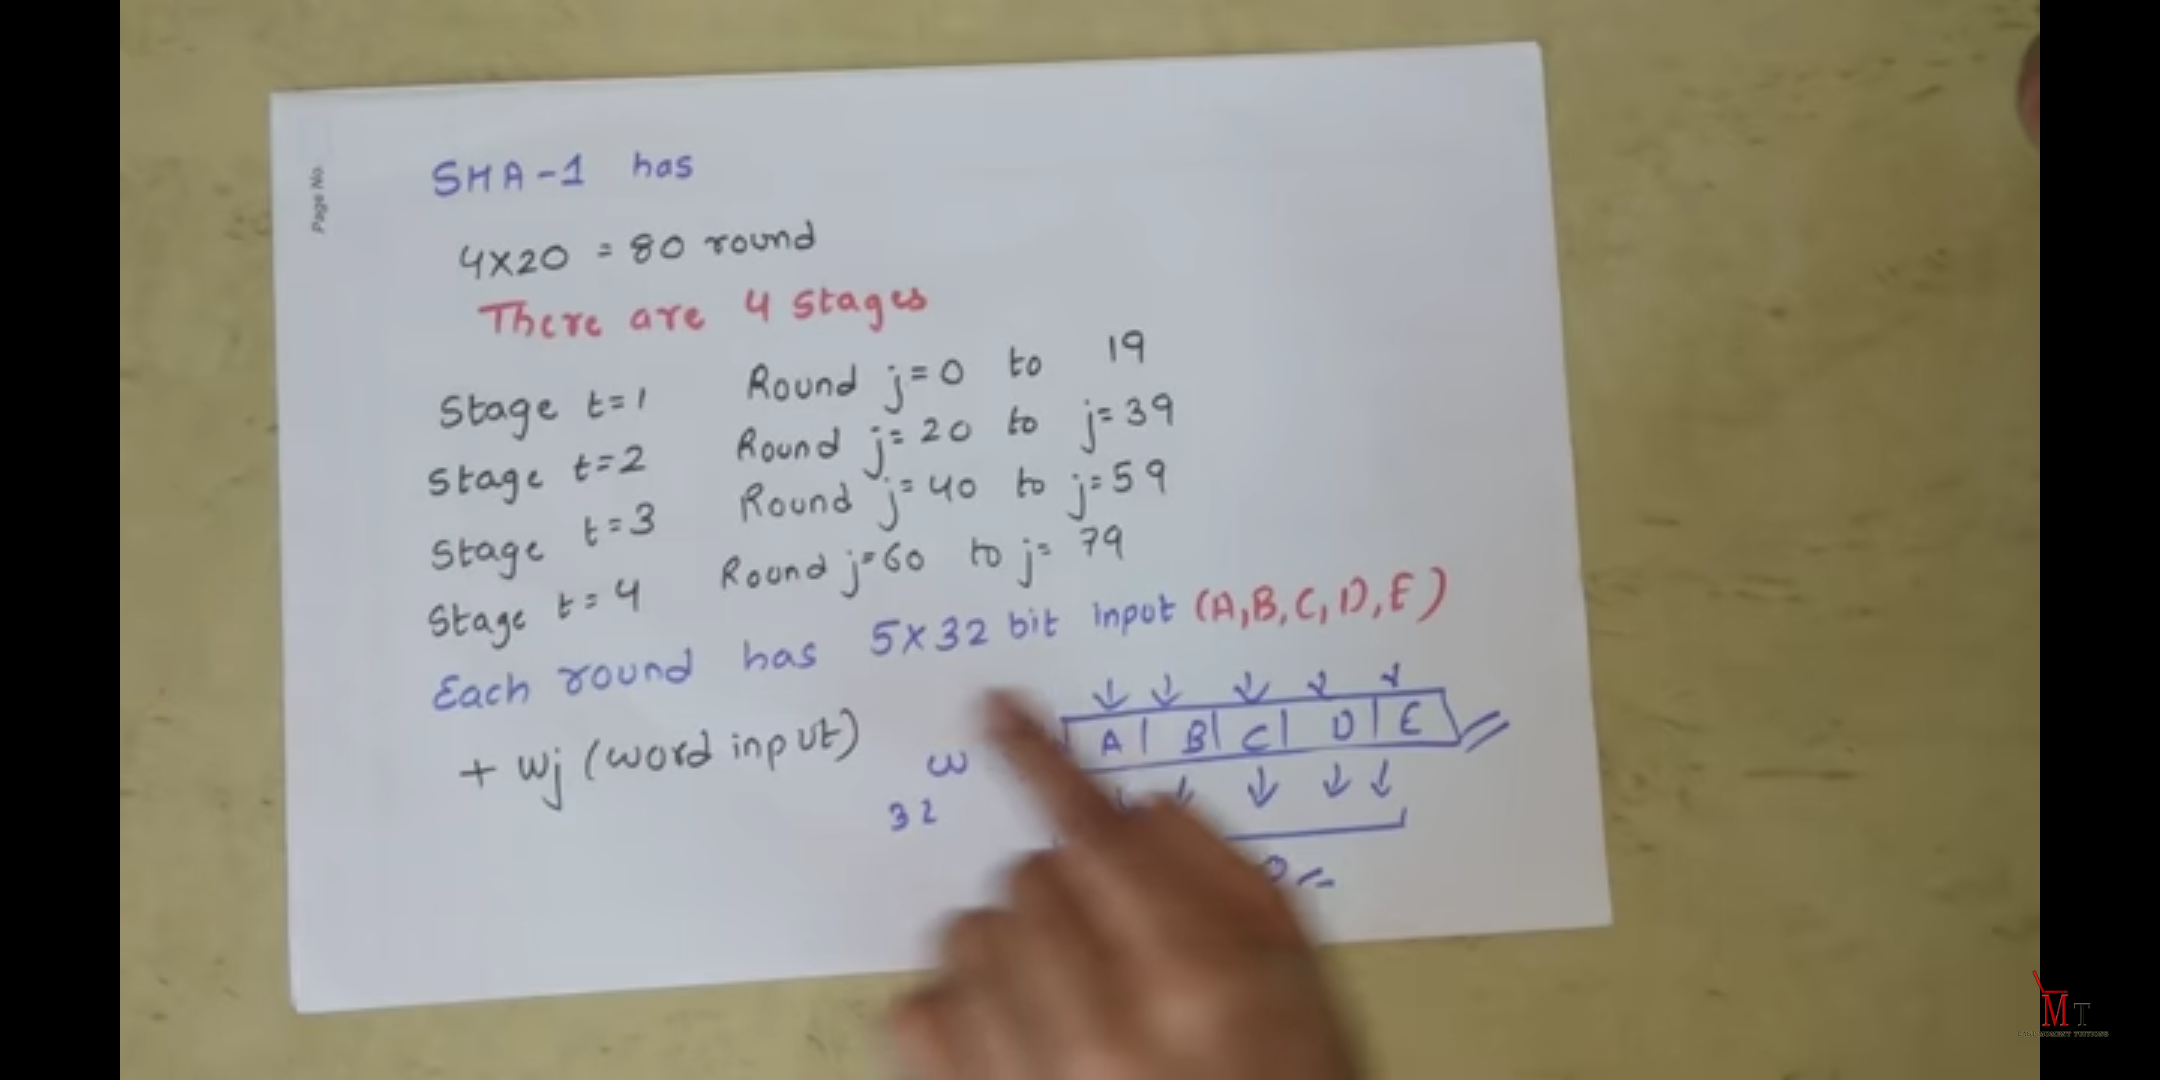 Page No.
SHA-1 has
4X20 = 80 round
There are 4 stages
Stage t=1 Round j=0 to 19
Stage t=2 Round j=20 to j=39
Stage t=3 Round j=40 to j=59
Stage t=4 Round j=60 to j=79
Each round has 5X32 bit input (A,B,C,D,E)
+ Wj (word input)
A B C D E
W
32
MT